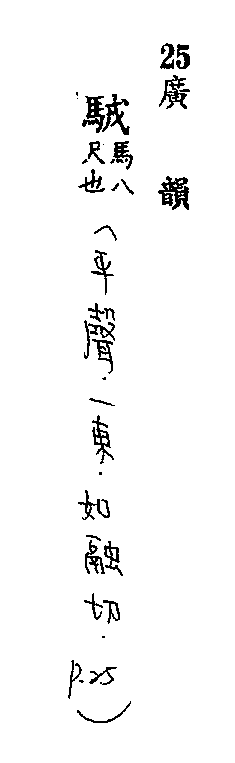 25廣韻
駥馬八尺也(平聲.一東.如融切.p.25)